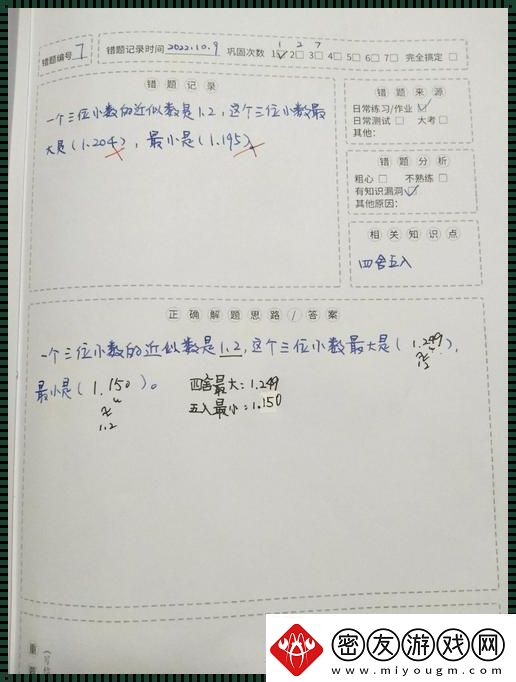 错题编号 7
错题记录时间 2022.10.9 巩固次数 1 2 3 4 5 6 7 完全搞定
1 2 7
错题记录
一个三位小数的近似数是1.2,这个三位小数最
大是(1.204),最小是(1.195)。
错题来源
日常练习/作业
日常测试 大考
其他:
错题分析
粗心 不熟练
有知识漏洞
其他原因:
相关知识点
四舍五入
正确解题思路/答案
一个三位小数的近似数是1.2,这个三位小数最大是(1.249),
≈
1.2
最小是(1.150)。
≈
1.2
四舍最大:1.249
五入最小:1.150
密友游戏网
www.miyougm.com